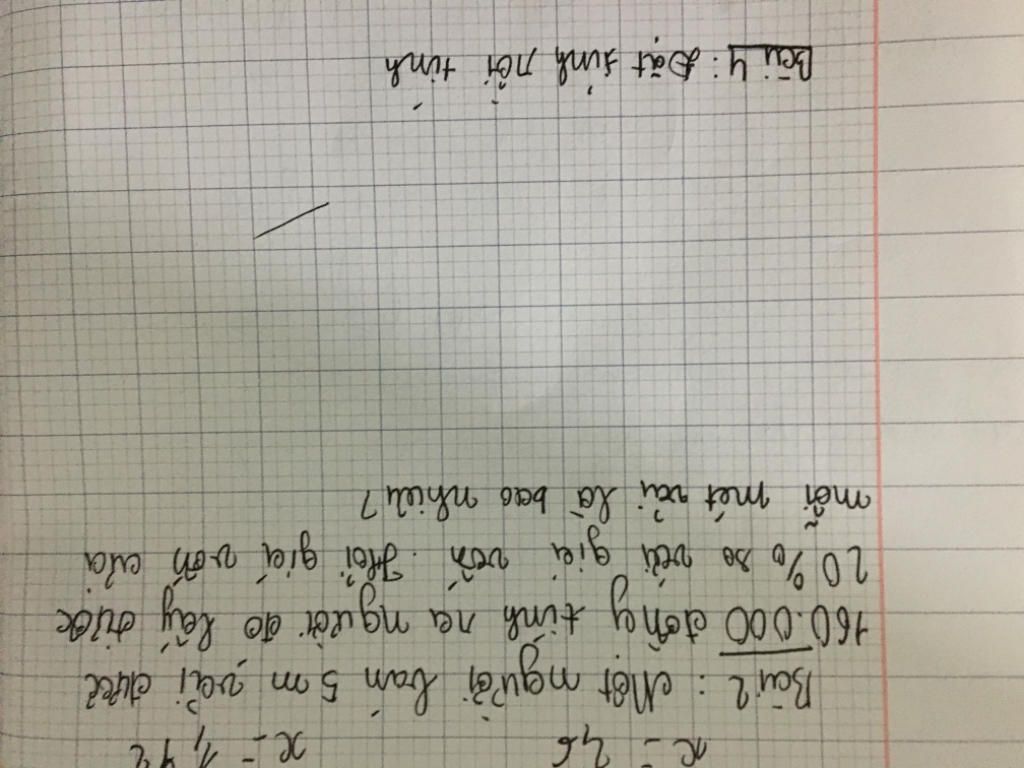 x = 2,6 x = 1,42
Bài 2 : Một người bán 5 m vải được
160.000 đồng tính ra người đó lấy được
20% so với giá vốn. Hỏi giá vốn của
mỗi mét vải là bao nhiêu?
Bài 4 : Đặt tính rồi tính